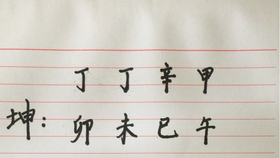 丁 丁 辛 甲
坤： 卯 未 巳 午